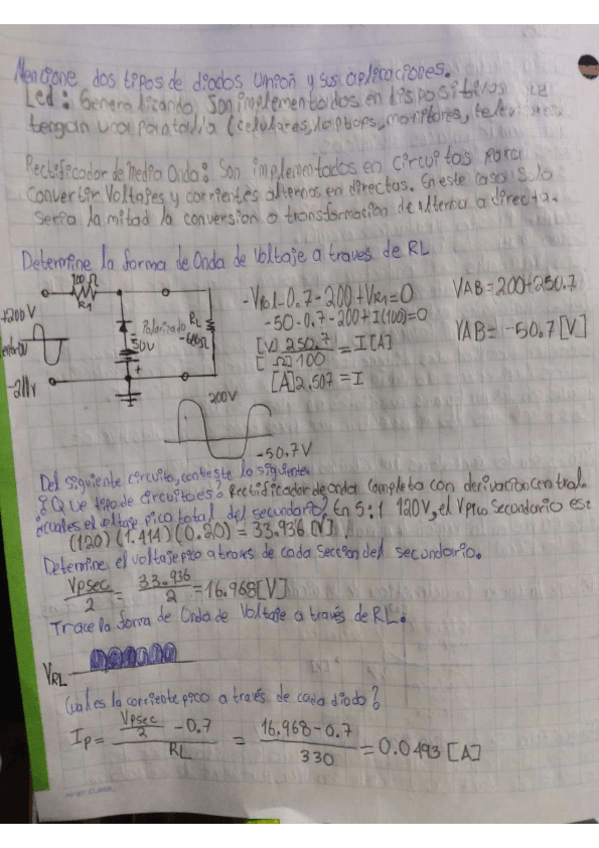 Mencione dos tipos de diodos Union y sus aplicaciones.
Led: Generalizando, Son implementados en dispositivos que
tengan una pantalla (celulares, laptops, monitores, televisores
Rectificador de Media Onda: Son implementados en circuitos para
Convertir Voltajes y corrientes alternos en directas. En este caso solo
seria la mitad la conversion o transformation de alterna a directa.
Determine la forma de Onda de Voltaje a traves de RL
100 Ω
R1
+200V
-211v
Polarizado
50V
+
RL
680Ω
-VPol-0.7-200+VR1=0
-50-0.7-200+I(100)=0
[V] 250.7 = I[A]
[Ω] 100
[A] 2.507 = I
VAB=200+250.7
VAB= -50.7[V]
200V
-50.7V
Del siguiente circuito, conteste lo siguiente
¿Que tipo de circuito es? Rectificador de onda Completa con derivación central.
¿cuál es el voltaje pico total del secundario? En 5:1 120V, el Vpico Secundario es:
(120)(1.414)(0.20) = 33.936 [V]
Determine el voltaje pico a traves de cada seccion del secundario.
Vpsec/2 = 33.936/2 = 16.968[V]
Trace la forma de Onda de Voltaje a través de RL.
VRL
Cual es la corriente pico a través de cada diodo?
Ip = (Vpsec/2 - 0.7)/RL = (16.968-0.7)/330 = 0.0493 [A]